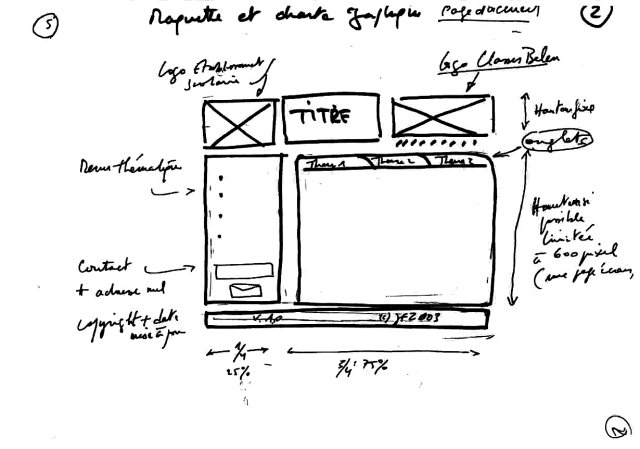 5
Maquette et charte graphique page d'accueil
2
Logo Etablissement
scolaire
Logo
TITRE
Hauteur fixe
onglets
Menu thématique
Theme 1 Theme 2 Theme 3
Hauteur si
possible
limitée
à 600 pixel
(une page écran)
Contact
+ adresse mel
copyright + date
mise à jour
(c) JF 2003
1/4 3/4 : 75%
25%
2